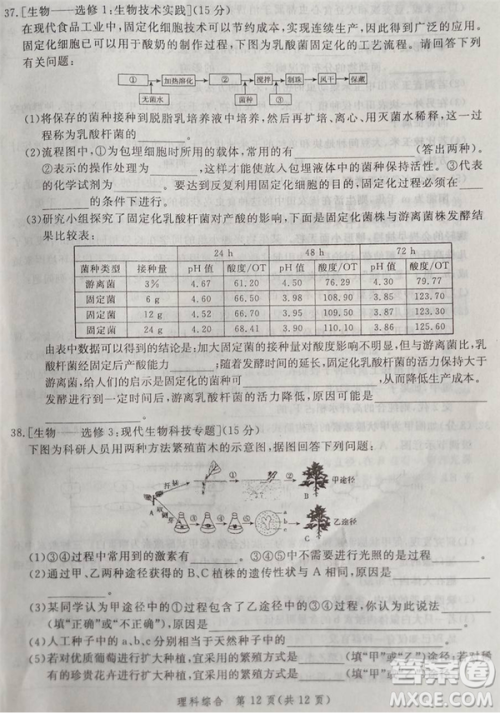 37.[生物——选修1:生物技术实践](15分)
在现代食品工业中,固定化细胞技术可以节约成本,实现连续生产,提高生产效率。用
固定化细胞还可以用于酸奶的制作过程,下图为乳酸菌固定化的工艺流程。请回答下列
有关问题:
① 加热溶化 ② 搅拌 制珠 风干 保藏
无菌水 菌种 ③
(1)将保存的菌种接种到脱脂乳培养液中培养,然后再扩培、离心,用灭菌水稀释,这一过
程称为乳酸杆菌的
(2)流程图中,①为包埋细胞时所用的载体,常用的有 (答出两种)。
②表示的操作处理为 ,这样才能使放入包埋液体中的菌种保持活性。③代表
的化学试剂为 。要达到反复利用固定化细胞的目的,固定化过程必须在
的条件下进行。
(3)研究小组探究了固定化乳酸杆菌对产酸的影响,下面是固定菌株与游离菌株发酵结
果比较表:
24 h 48 h 72 h
菌种类型 接种量 pH值 酸度/OT pH值 酸度/OT pH值 酸度/OT
游离菌 3 g 4.67 61.20 4.50 76.29 4.30 79.77
固定菌 6 g 4.40 66.90 3.98 108.90 3.85 123.70
固定菌 12 g 4.30 66.50 3.95 110.50 3.83 125.10
固定菌 24 g 4.20 68.41 3.90 110.50 3.83 123.10
由表中数据可以的得出的结论是:加大固定菌的接种量对酸度影响不明显,但说明乳酸
杆菌经固定后产酸能力 ;随着发酵时间的延长,固定化乳酸杆菌的活力保持
,给人们的启示是固定化乳酸杆菌可以 。
发酵后期,游离乳酸杆菌的活力降低,原因可能是
。
38.[生物——选修3:现代生物科技专题](15分)
下图为科研人员用两种方法繁殖苗木的示意图,据图回答下列问题:
芽 ① ② B 甲途径
A 芽
③ ④ ⑤ ⑥ a b c C 乙途径
(1)③④过程中常用到的激素有 ,③④过程中不需要进行光照的是过程
(2)通过甲、乙两种途径获得的B、C植株的遗传性状与A相同,原因是
。
(3)某同学认为甲途径中的①②包含了乙途径中的③④过程,你认为此说法
(填“正确”或“不正确”),原因是 。
(4)人工种子中的a、b、c分别相当于天然种子的
(5)若对优质葡萄进行扩大种植,宜采用的繁殖方式是 (填“甲”或“乙”)途径;若对现存
的珍贵花卉进行扩大种植,宜采用的繁殖方式是 (填“甲”或“乙”)途径。
理科综合 第12页(共12页)